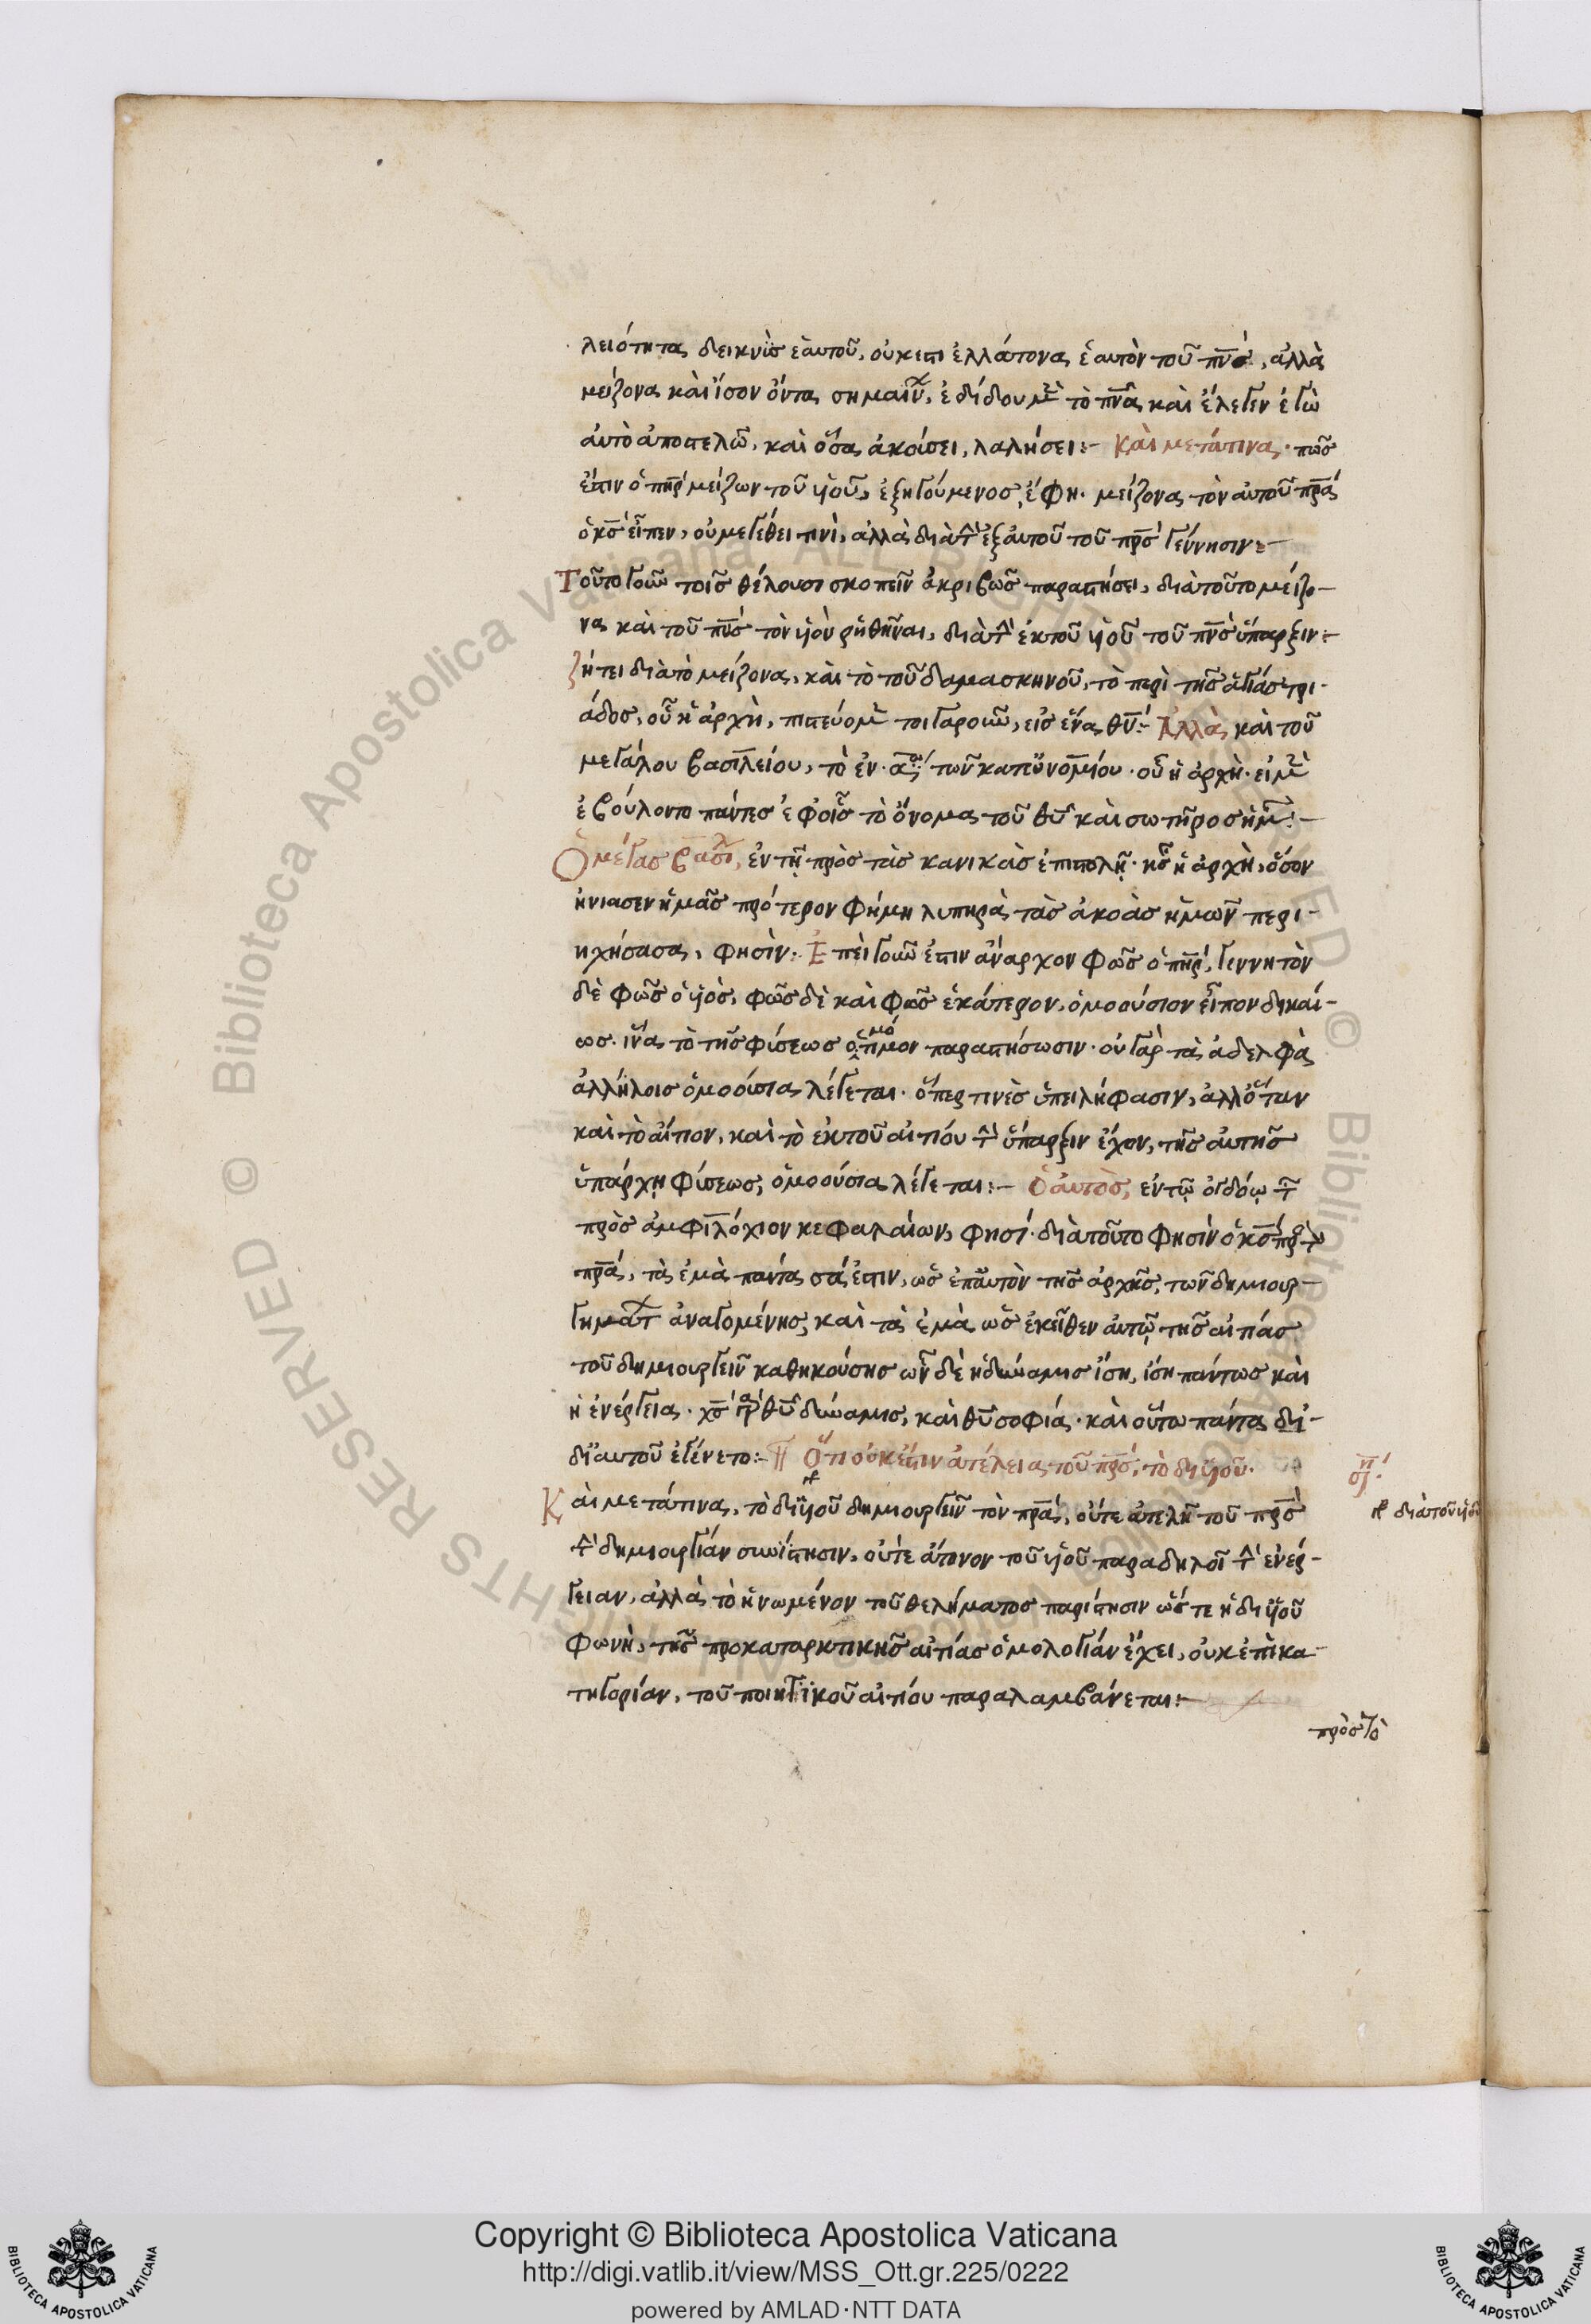 λειότητα δεικνὺς ἑαυτοῦ, οὐκέτι ἐλλάτονα ἑαυτὸν τοῦ πν̅ς, ἀλλὰ
μείζονα καὶ ἴσον ὄντα σημαίν, ἐδίδου μὲν τὸ πν̅α καὶ ἔλεγεν ἐγὼ
αὐτὸ ἀποστελῶ, καὶ ὅσα ἀκούσει, λαλήσει:- Καὶ μετά τινα. πῶς
ἐστιν ὁ πη̅ρ μείζων τοῦ υἱοῦ, ἐξηγούμενος, ἔφη. μείζονα τὸν αὐτοῦ πρ̅α
ὁ κ̅ς εἶπεν, οὐ μεγέθει τινὶ, ἀλλὰ διὰ τὴν ἐξ αὐτοῦ τοῦ πρ̅ς γέννησιν:-
Τοῦτο γοῦν τοῖς θέλουσι σκοπεῖν ἀκριβῶς παραστήσει, διὰ τοῦτο μείζο-
να καὶ τοῦ πν̅ς τὸν υἱὸν ῥηθῆναι, διὰ τὴν ἐκ τοῦ υἱοῦ τοῦ πν̅ς ὕπαρξιν:-
ζήτει διὰ τὸ μείζονα, καὶ τὸ τοῦ δαμασκηνοῦ, τὸ περὶ τῆς ἁγίας τρι-
άδος, οὗ ἡ ἀρχὴ, πιστεύομεν τοιγαροῦν, εἰς ἕνα θ̅ν:- Ἀλλὰ καὶ τοῦ
μεγάλου βασιλείου, τὸ ἐν τῶν κατ' εὐνομίου. οὗ ἡ ἀρχὴ. εἰ μὲν
ἐβούλοντο πάντες ἐφ' οἷς τὸ ὄνομα τοῦ θ̅υ καὶ σωτῆρος ἡμ:-
Ὁ μέγας βασίλ, ἐν τῇ πρὸς τὰς κανικὰς ἐπιστολῇ. ἧς ἡ ἀρχὴ, ὅσον
ἠνίασεν ἡμᾶς πρότερον φήμη λυπηρὰ τὰς ἀκοὰς ἡμῶν περι-
ηχήσασα, φησίν. Ἐπεὶ γοῦν ἐστιν ἄναρχον φῶς ὁ πη̅ρ, γεννητὸν
δὲ φῶς ὁ υἱὸς, φῶς δὲ καὶ φῶς ἑκάτερον, ὁμοούσιον εἶπον δικαί-
ως. ἵνα τὸ τῆς φύσεως ὁμότιμον παραστήσωσιν. οὐ γὰρ τὰ ἀδελφὰ
ἀλλήλοις ὁμοούσια λέγεται. ὅπερ τινὲς ὑπειλήφασιν, ἀλλ' ὅταν
καὶ τὸ αἴτιον, καὶ τὸ ἐκ τοῦ αἰτίου τὴν ὕπαρξιν ἔχον, τῆς αὐτῆς
ὑπάρχῃ φύσεως, ὁμοούσια λέγεται:- Ὁ αὐτὸς, ἐν τῷ ὀγδόῳ τῶν
πρὸς ἀμφιλόχιον κεφαλαίων, φησί. διὰ τοῦτο φησὶν ὁ κ̅ς πρὸς τὸν
πρ̅α, τὰ ἐμὰ πάντα σά ἐστιν, ὡς ἐπ' αὐτὸν τῆς ἀρχῆς, τῶν δημιουρ-
γημάτ ἀναγομένης, καὶ τὰ ἐμὰ ὡς ἐκεῖθεν αὐτῷ τῆς αἰτίας
τοῦ δημιουργεῖν καθηκούσης ὧν δὲ ἡ δύναμις ἴση, ἴση πάντως καὶ
ἡ ἐνέργεια. χ̅ς γὰρ θ̅υ δύναμις, καὶ θ̅υ σοφία. καὶ οὕτω πάντα δι-
δι' αὐτοῦ ἐγένετο:- Ὅτι οὐκ ἔστιν ἀτέλεια τοῦ πρ̅ς, τὸ δι' υἱοῦ.
Καὶ μετά τινα, τὸ δι' υἱοῦ δημιουργεῖν τὸν πρ̅α, οὔτε ἀτελῆ τοῦ πρ̅ς
τὴν δημιουργίαν συνίστησιν, οὔτε ἄτονον τοῦ υἱοῦ παραδηλοῖ τὴν ἐνέρ-
γειαν, ἀλλὰ τὸ ἡνωμένον τοῦ θελήματος παρίστησιν ὥστε ἡ δι' υἱοῦ
φωνὴ, τῆς προκαταρκτικῆς αἰτίας ὁμολογίαν ἔχει, οὐκ ἐπὶ κα-
τηγορίαν, τοῦ ποιητικοῦ αἰτίου παραλαμβάνεται:-
διὰ τοῦ υἱοῦ
πρὸς τὸ
Copyright © Biblioteca Apostolica Vaticana
http://digi.vatlib.it/view/MSS_Ott.gr.225/0222
powered by AMLAD·NTT DATA
BIBLIOTECA APOSTOLICA VATICANA
BIBLIOTECA APOSTOLICA VATICANA
© Biblioteca Apostolica Vaticana ALL RIGHTS RESERVED